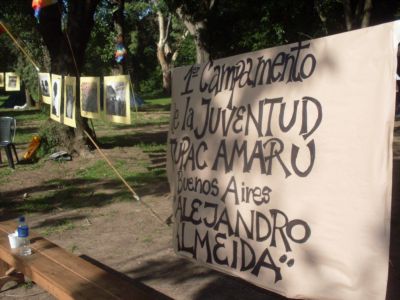 1er Campamento
de la JUVENTUD
TUPAC AMARU
Buenos Aires
ALEJANDRO
ALMEIDA